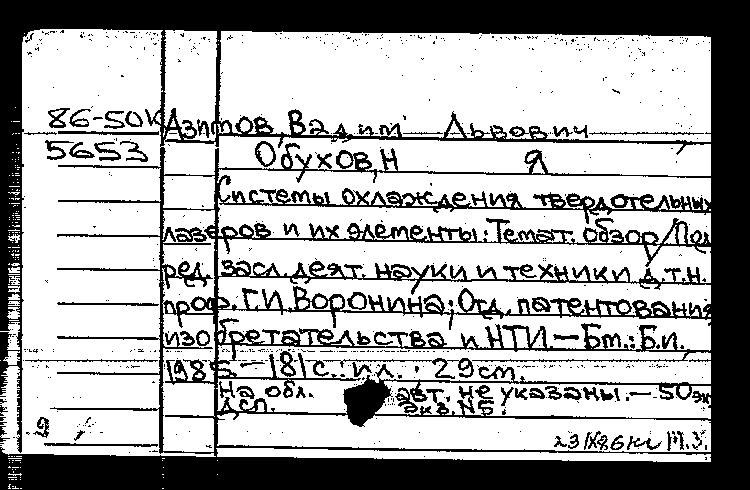 86-50К Азимов, Вадим Львович
5653 Обухов, Н Я
Системы охлаждения твердотельных
лазеров и их элементы: Темат. обзор/Под
ред. засл. деят. науки и техники д.т.н.
проф. Г.И. Воронина; Отд. патентования
изобретательства и НТИ.—Бт.: Б.и.,
1985.—181 с.: ил.; 29 cm.
На обл. авт. не указаны.—50 эк
Дсп. Экз. N5.
23 IX 86 кг М.З.